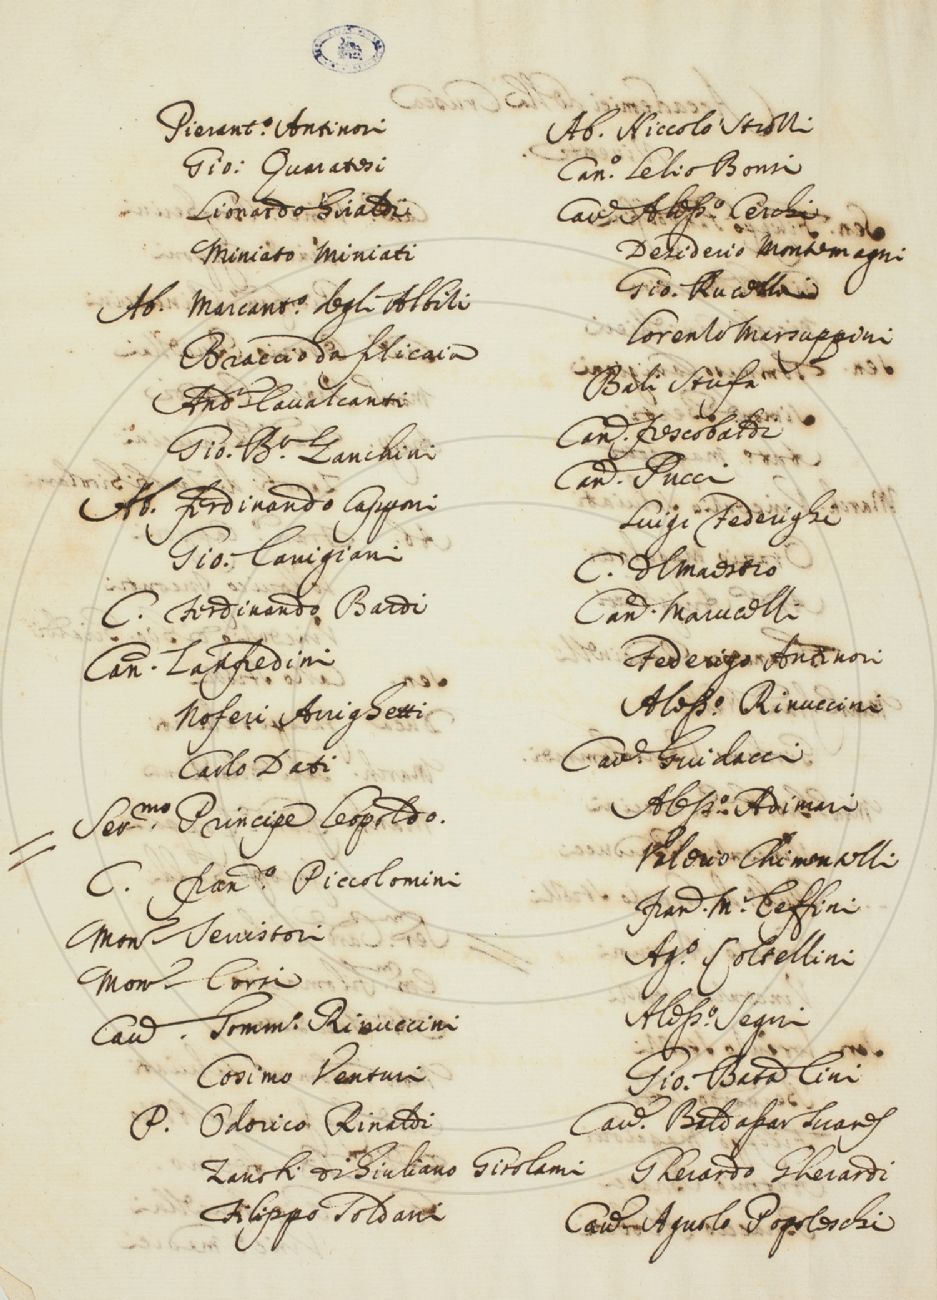 Pierant.o Antinori
Gio: Quaratesi
Lionardo Giraldi
Miniato Miniati
Ab. Marcant.o degli Albiti
Braccio da filicaia
And.a Cavalcanti
Gio. B.a Zanchini
Ab. ferdinando Capponi
Gio. Cavigiani
C. Ferdinando Bardi
Can. Lanfredini
Noferi Arrighetti
Carlo Dati
Ser.mo Principe Leopoldo.
C. fran.o Piccolomini
Mon.r Serristori
Mon.r Corsi
Cav. Tomm.o Rinuccini
Cosimo Venturi
P. Odorico Rinaldi
Zanobi di Giuliano Girolami
Filippo Soldani
Ab. Niccolò Strozzi
Can.o Lelio Bonsi
Cav. Aless.o Cerchi
Desiderio Montemagni
Gio. Rucellai
Lorenzo Marsuppini
Bali Stufa
Cand. frescobaldi
Cand. Pucci
Luigi Federighi
C. del Maestro
Cand. Marucelli
Federigo Antinori
Aless.o Rinuccini
Cav. Guidacci
Aless.o Adimari
Valerio Chimentelli
Fran. M.a Ceffini
Ag.o Coltellini
Aless.o Segni
Gio. Bata Cini
Cav. Baldassar Suares
Gherardo Gherardi
Cav. Agnolo Popoleschi